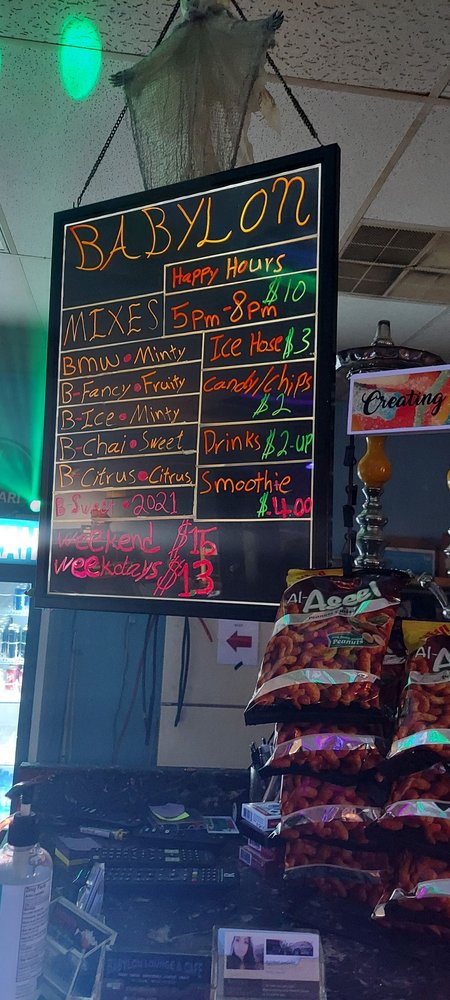 BABYLON
Happy Hours
5pm-8pm $10
MIXES
Bmw • Minty
B-Fancy • Fruity
B-Ice • Minty
B-Chai • Sweet
B-Citrus • Citrus
B Sweet • 2021
Ice Hose $3
Candy/Chips
$2
Drinks $2-up
Smoothie
$4.00
Weekend $15
Weekdays $13
Creating
Al-Ageel
Peanuts
Al-A